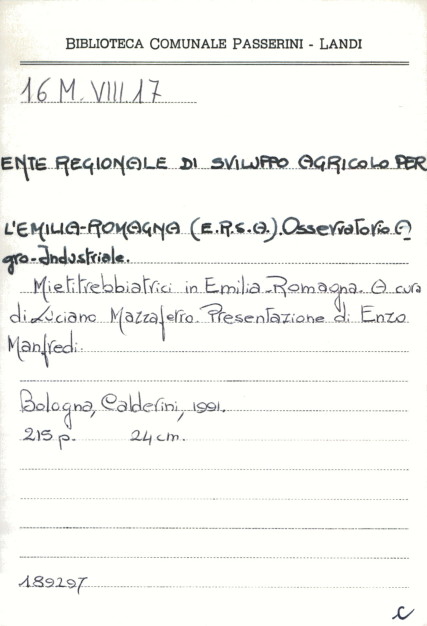 BIBLIOTECA COMUNALE PASSERINI - LANDI
16 M. VIII 17
ENTE REGIONALE DI SVILUPPO AGRICOLO PER
L'EMILIA-ROMAGNA (E.R.S.A.). Osservatorio A
gro-Industriale.
Mietitrebbiatrici in Emilia-Romagna. A cura
di Luciano Mazzaferro. Presentazione di Enzo
Manfredi.
Bologna, Calderini, 1991.
215 p. 24 cm.
189297
C